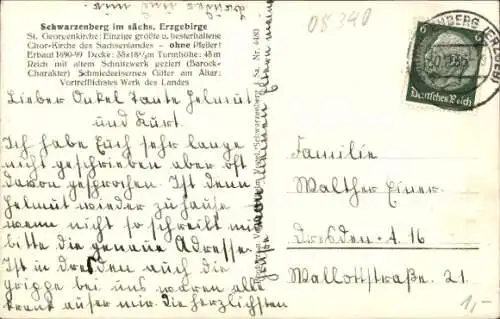 Schwarzenberg im sächs. Erzgebirge
St. Georgenkirche: Einzige größte u. besterhaltene
Chor-Kirche des Sachsenlandes - ohne Pfeiler!
Erbaut 1690-99 Decke: 38x18½m Turmhöhe: 48 m
Reich mit altem Schnitzwerk geziert (Barock-
Charakter) Schmiedeeisernes Gitter am Altar:
Vortrefflichstes Werk des Landes
Lieber Onkel Tante Helmut
und Kurt.
Ich habe Euch sehr lange
nicht geschrieben aber oft
davon gesprochen. Ist denn
Helmut wieder zu hause
wenn nicht so schreibt mir
bitte die genaue Adresse.
Ist in Dresden auch die
grippe bei uns leben alle
krank außer mir die herzlichsten
meinen Eltern
Schwarzenberg i. Sa. Nr. 4480
08340
6
Deutsches Reich
Familie
Walther Einer
Dresden-A. 16
Wallottstraße. 21.
1,-